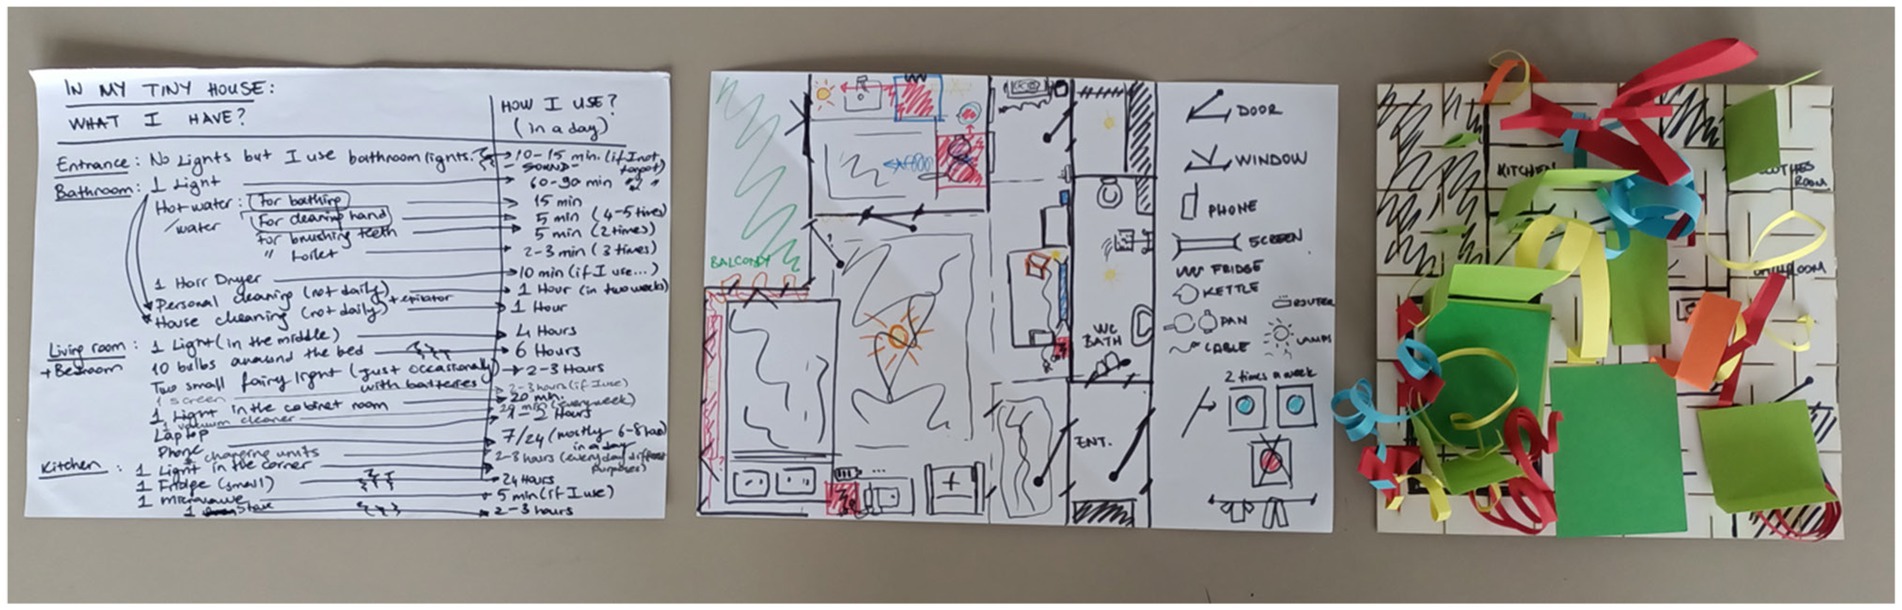 IN MY TINY HOUSE:
WHAT I HAVE?
HOW I USE?
(in a day)
Entrance: No Lights but I use bathroom lights.
10-15 min. (if I not forget)
- SOUND -
Bathroom: 1 Light
60-90 min " "
Hot water: For bathing
15 min
/water For cleaning hand
5 min (4-5 times)
For brushing teeth
5 min (2 times)
" toilet
2-3 min (3 times)
1 Hair Dryer
10 min (if I use...)
Personal cleaning (not daily) + epilator
1 Hour (in two weeks)
House cleaning (not daily)
1 Hour
Living room + Bedroom: 1 Light (in the middle)
4 Hours
10 bulbs around the bed
6 Hours
Two small fairy light (just occasionally) with batteries
2-3 Hours
1 screen
2-3 hours (if I use)
1 Light in the cabinet room
20 min.
1 vacuum cleaner
20 min (every week)
Laptop
1-2 Hours
Phone
7/24 (mostly 6-8 hours in a day
charging units
2-3 hours (everyday different purposes)
Kitchen: 1 Light in the corner
1 Fridge (small)
24 Hours
1 Microwave
5 min (if I use)
1 Stove
2-3 hours
BALCONY
WC
BATH
ENT.
DOOR
WINDOW
PHONE
SCREEN
FRIDGE
KETTLE
ROUTER
PAN
LAMPS
CABLE
2 times a week
KITCHEN
CLOTHES
ROOM
BATHROOM